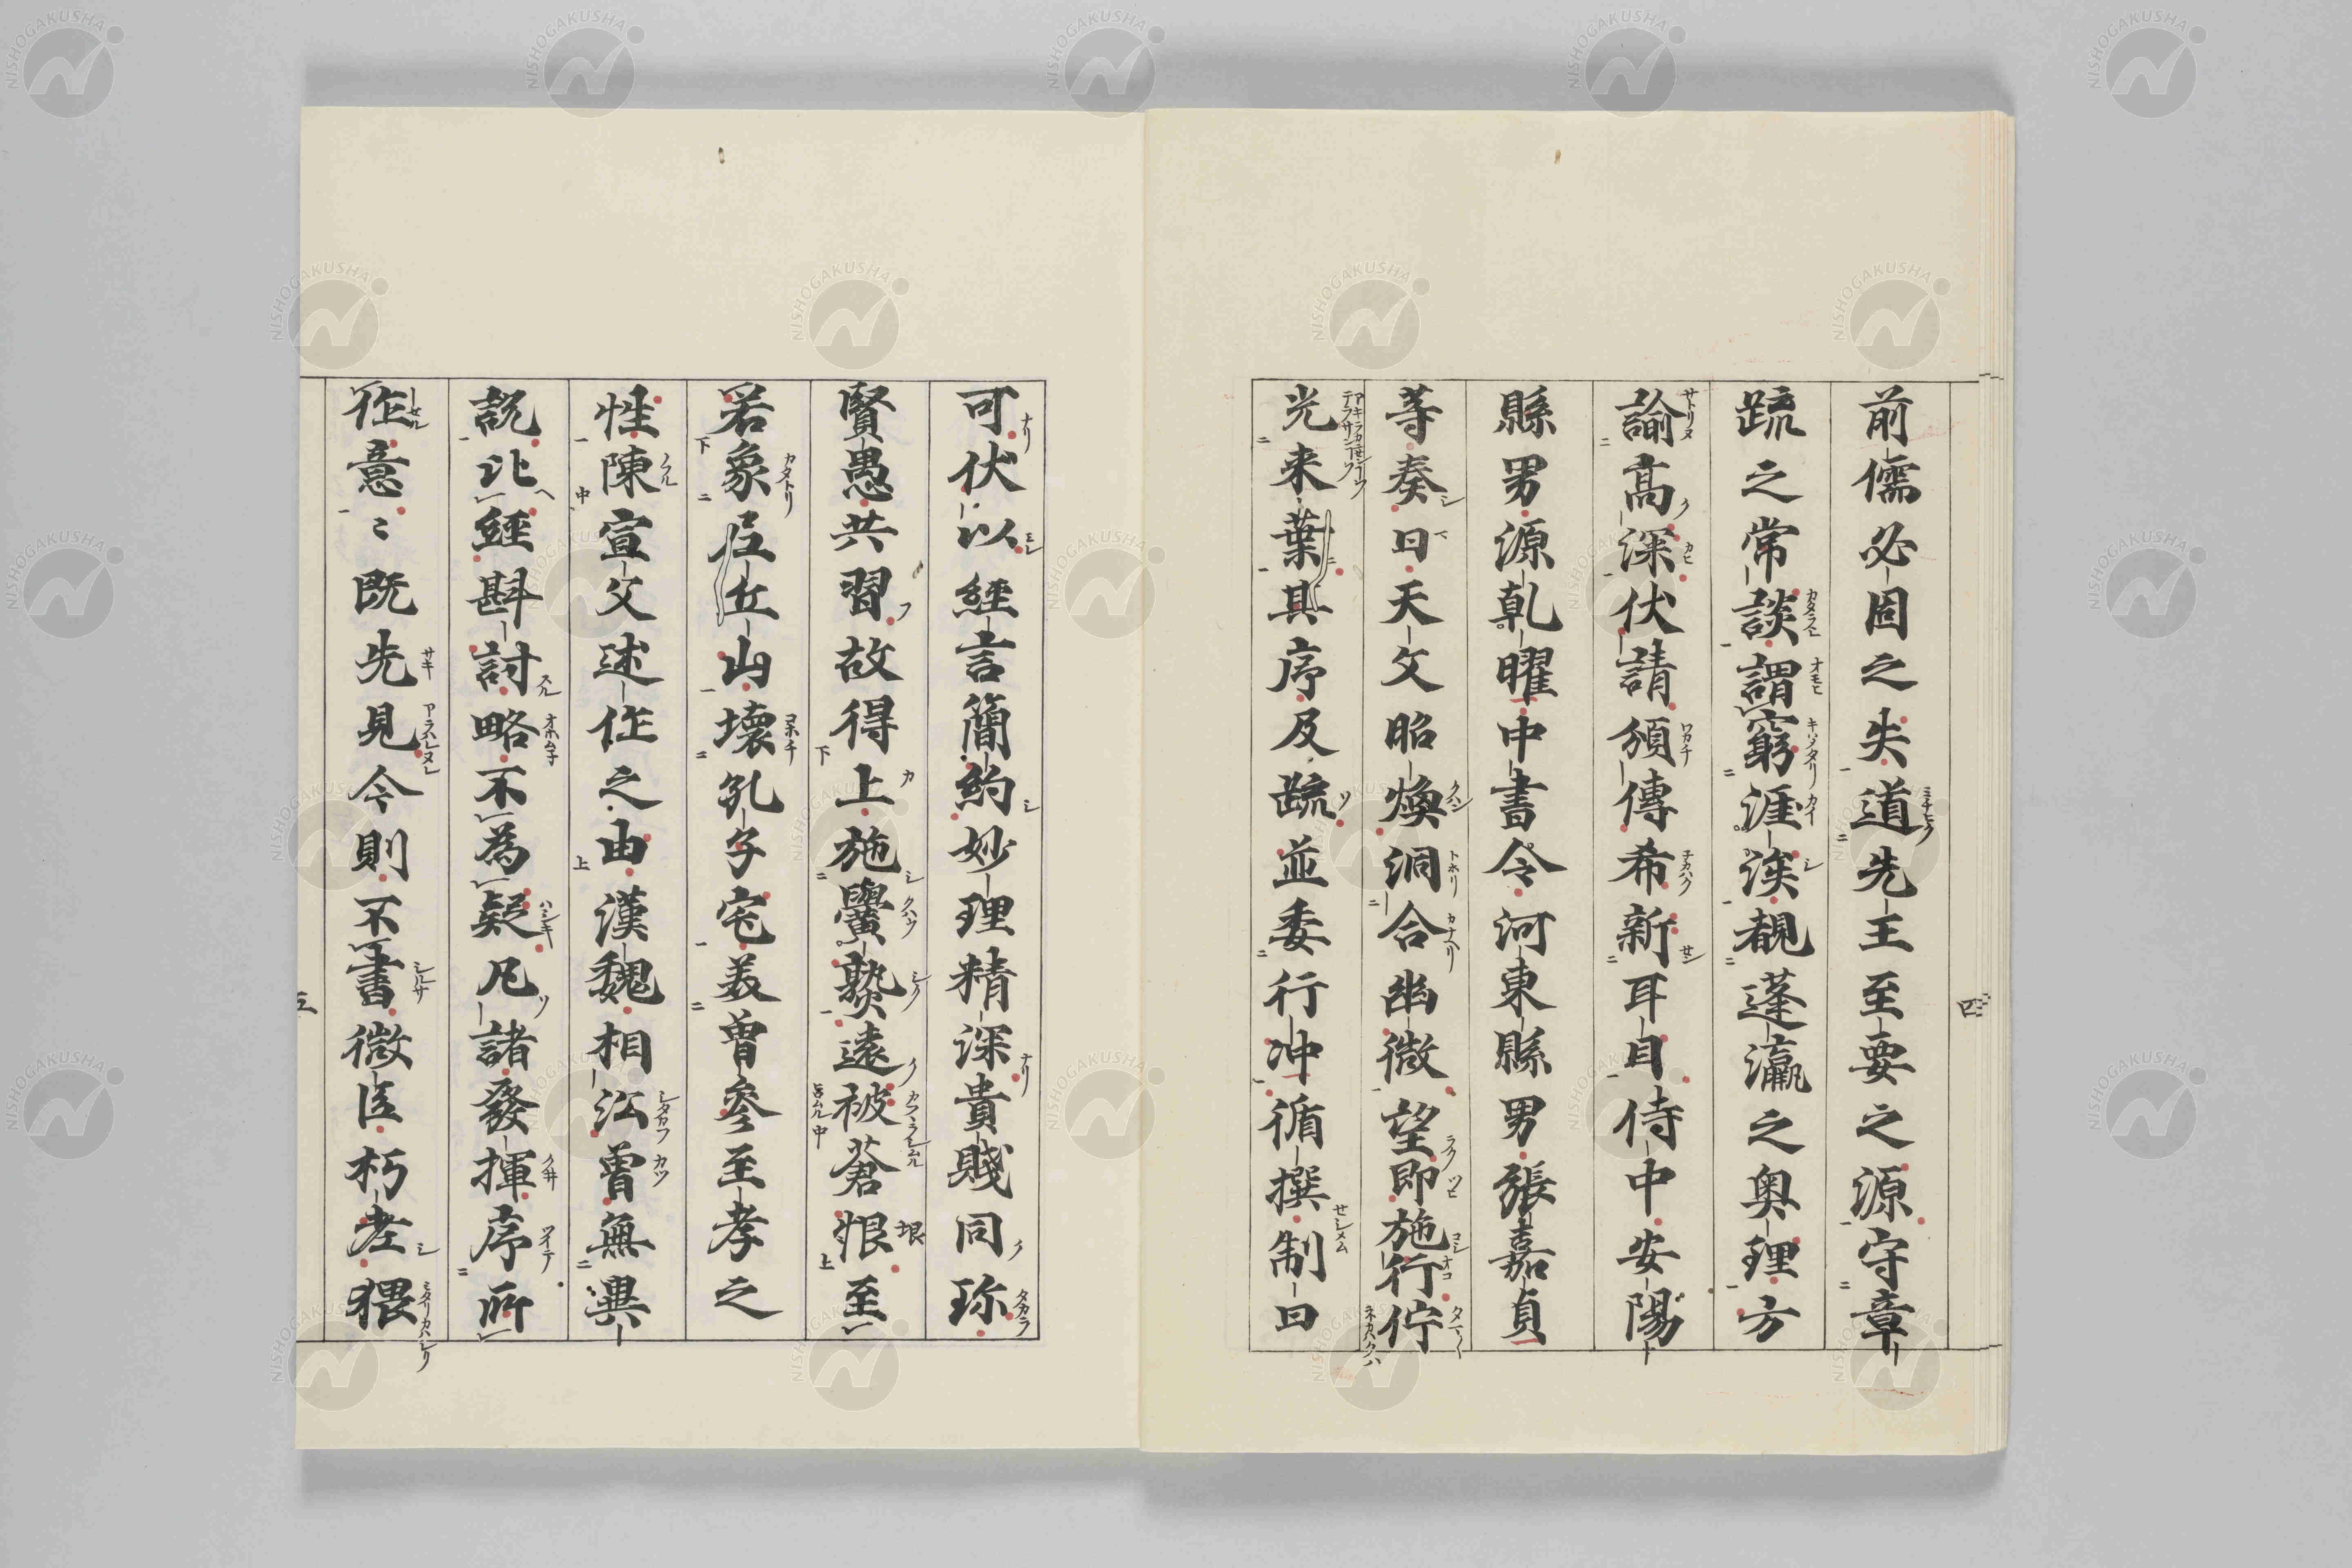 前儒必固之失道先王至要之源守章
疏之常談謂窮涯涘覩蓬瀛之奥理方
諭高深伏請頒傳希新耳目侍中安陽
縣男源乹曜中書令河東縣男張嘉貞
等奏曰天文昭煥洞合幽微望即施行佇
光来葉其序及疏並委行冲循撰制曰
四
可伏以經言簡約妙理精深貴賤同珎
賢愚共習故得上施黌塾遠被蒼恨至
若象尼丘山壊孔子宅美曽參至孝之
性陳宣父述作之由漢魏相㳂曽無異
説比經斟討略不為疑凡諸發揮序所
作意〻既先見今則不書微臣朽老猥
五